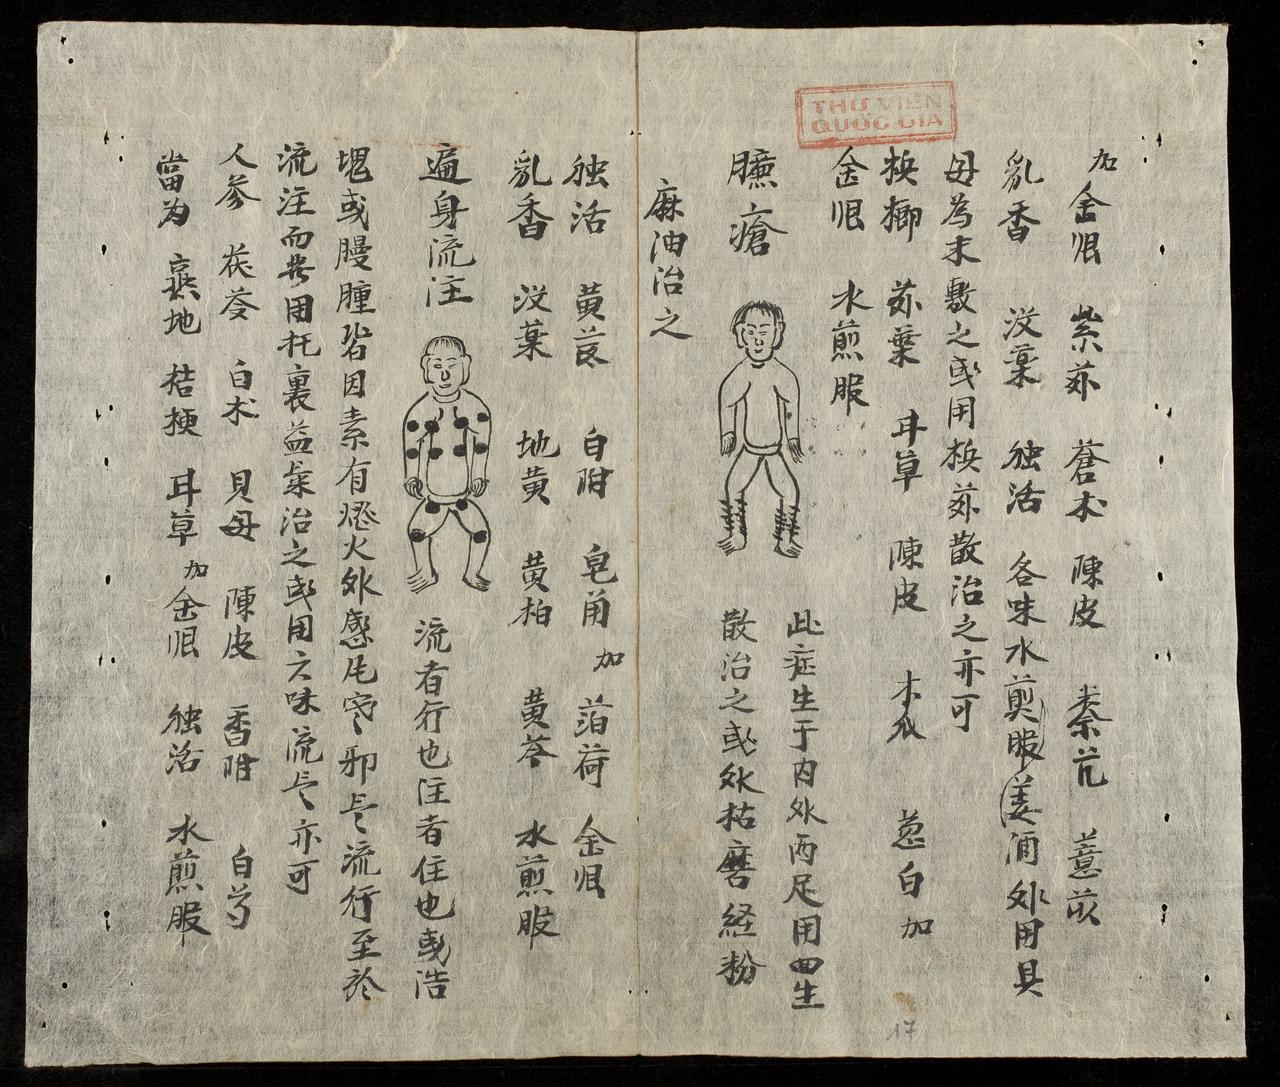 THƯ VIỆN
QUỐC GIA
加金限 紫苏 蒼术 陳皮 秦芃 薏苡
乳香 没藥 独活 各味水煎服 酒 外用貝
母為末敷之或用柍苏散治之亦可
柍榔 苏葉 耳草 陳皮 木瓜 葱白加
金限 水煎服
臁瘡
此症生于内外两足用四生
散治之或外枯磨経粉
麻油治之
独活 黄芪 白附 皂角加 萡荷 金限
乳香 没葉 地黄 黄柏 黄芩 水煎服
遍身流注
流者行也注者住也或浩
塊或腫皆因素有 火外感 寒邪 流行至於
流注而 用托裏益氣治之或用六味流 亦可
人參 茯苓 白术 貝母 陳皮 香附 白芍
當为 熟地 桔梗 耳草加金限 独活 水煎服
17